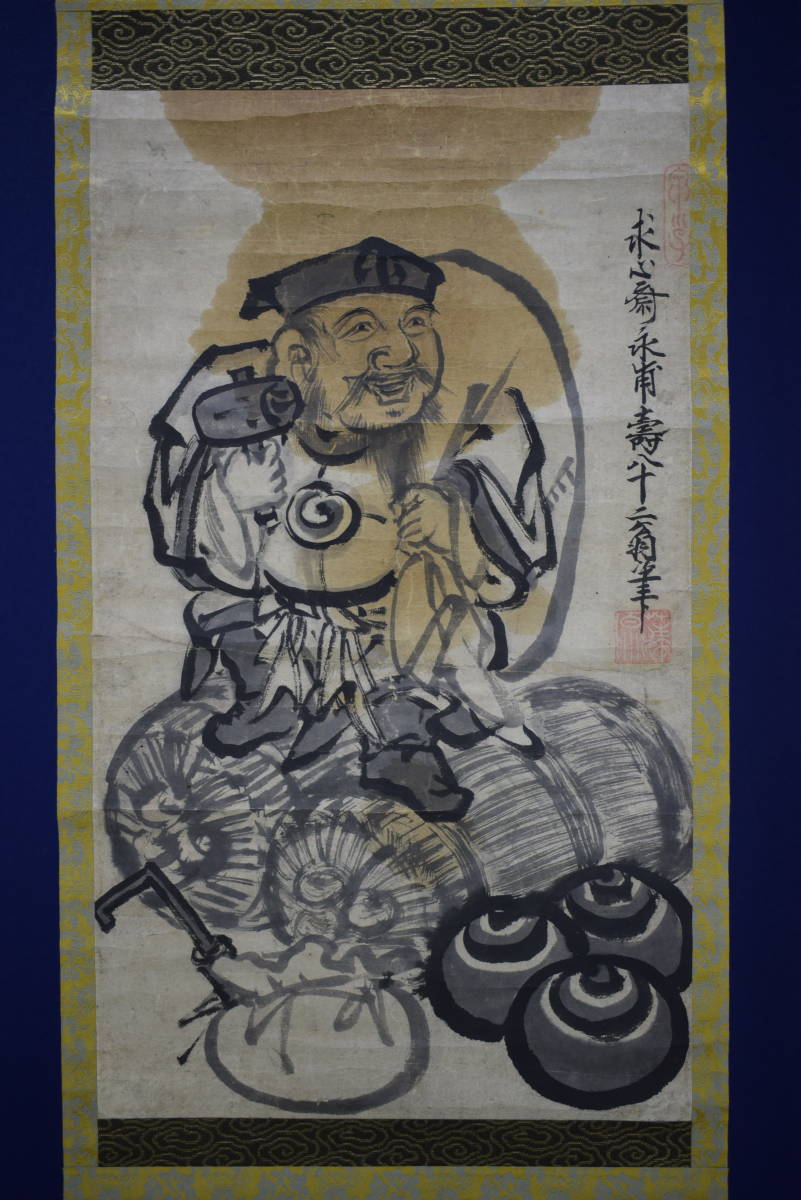 求心齋永甫壽八十二翁筆